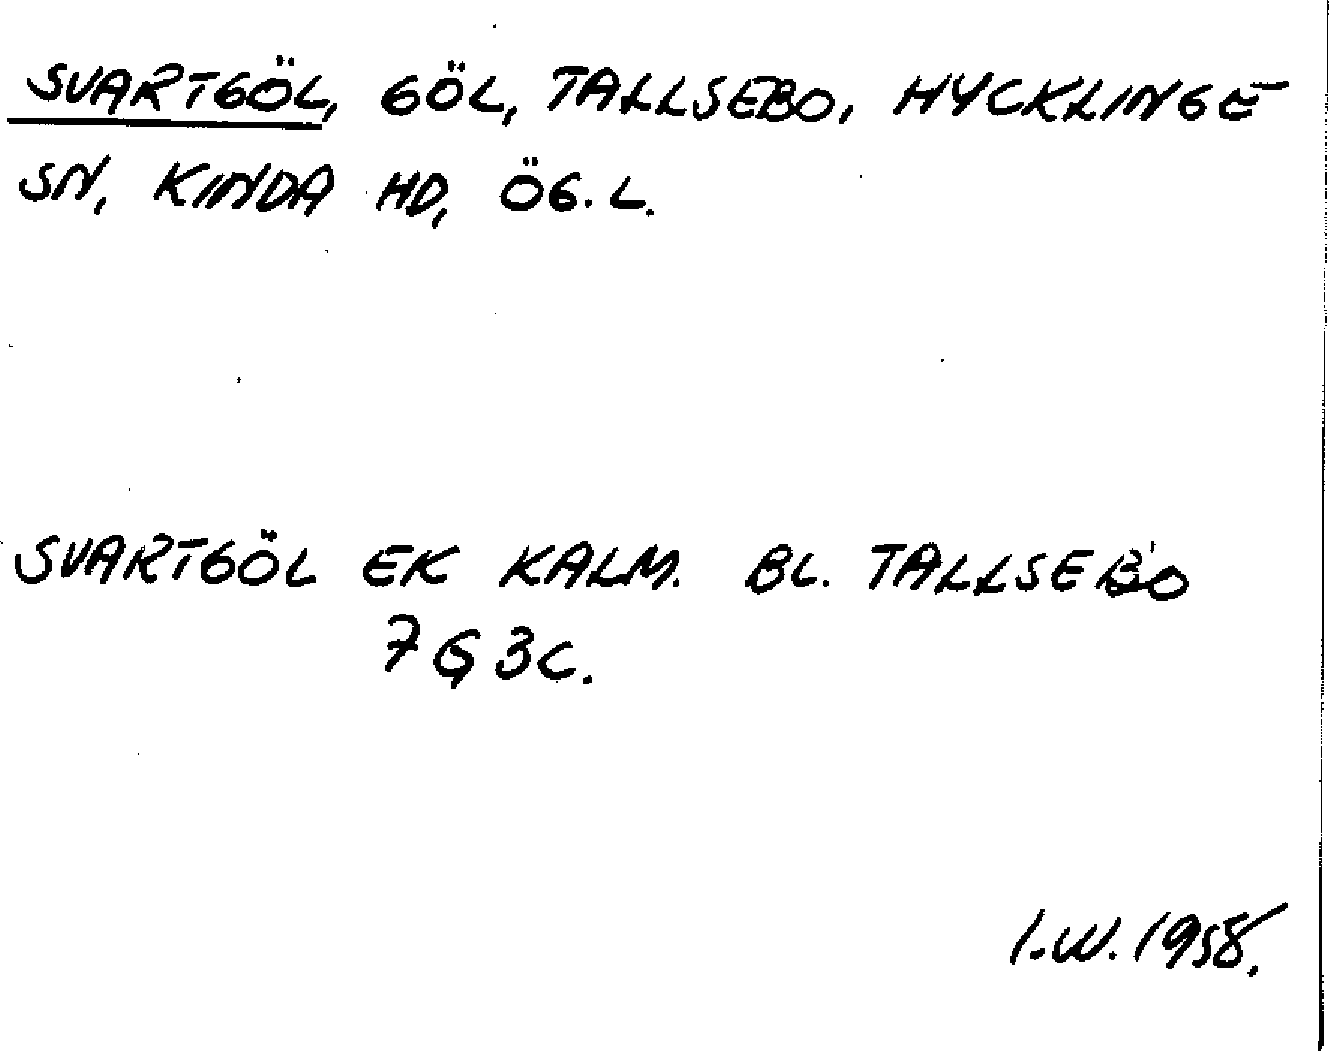 SVARTGÖL, GÖL, TALLSEBO, HYCKLINGE
SN, KINDA HD, ÖG. L.
SVARTGÖL EK KALM. BL. TALLSEBO
7G 3C.
I.W. 1958.